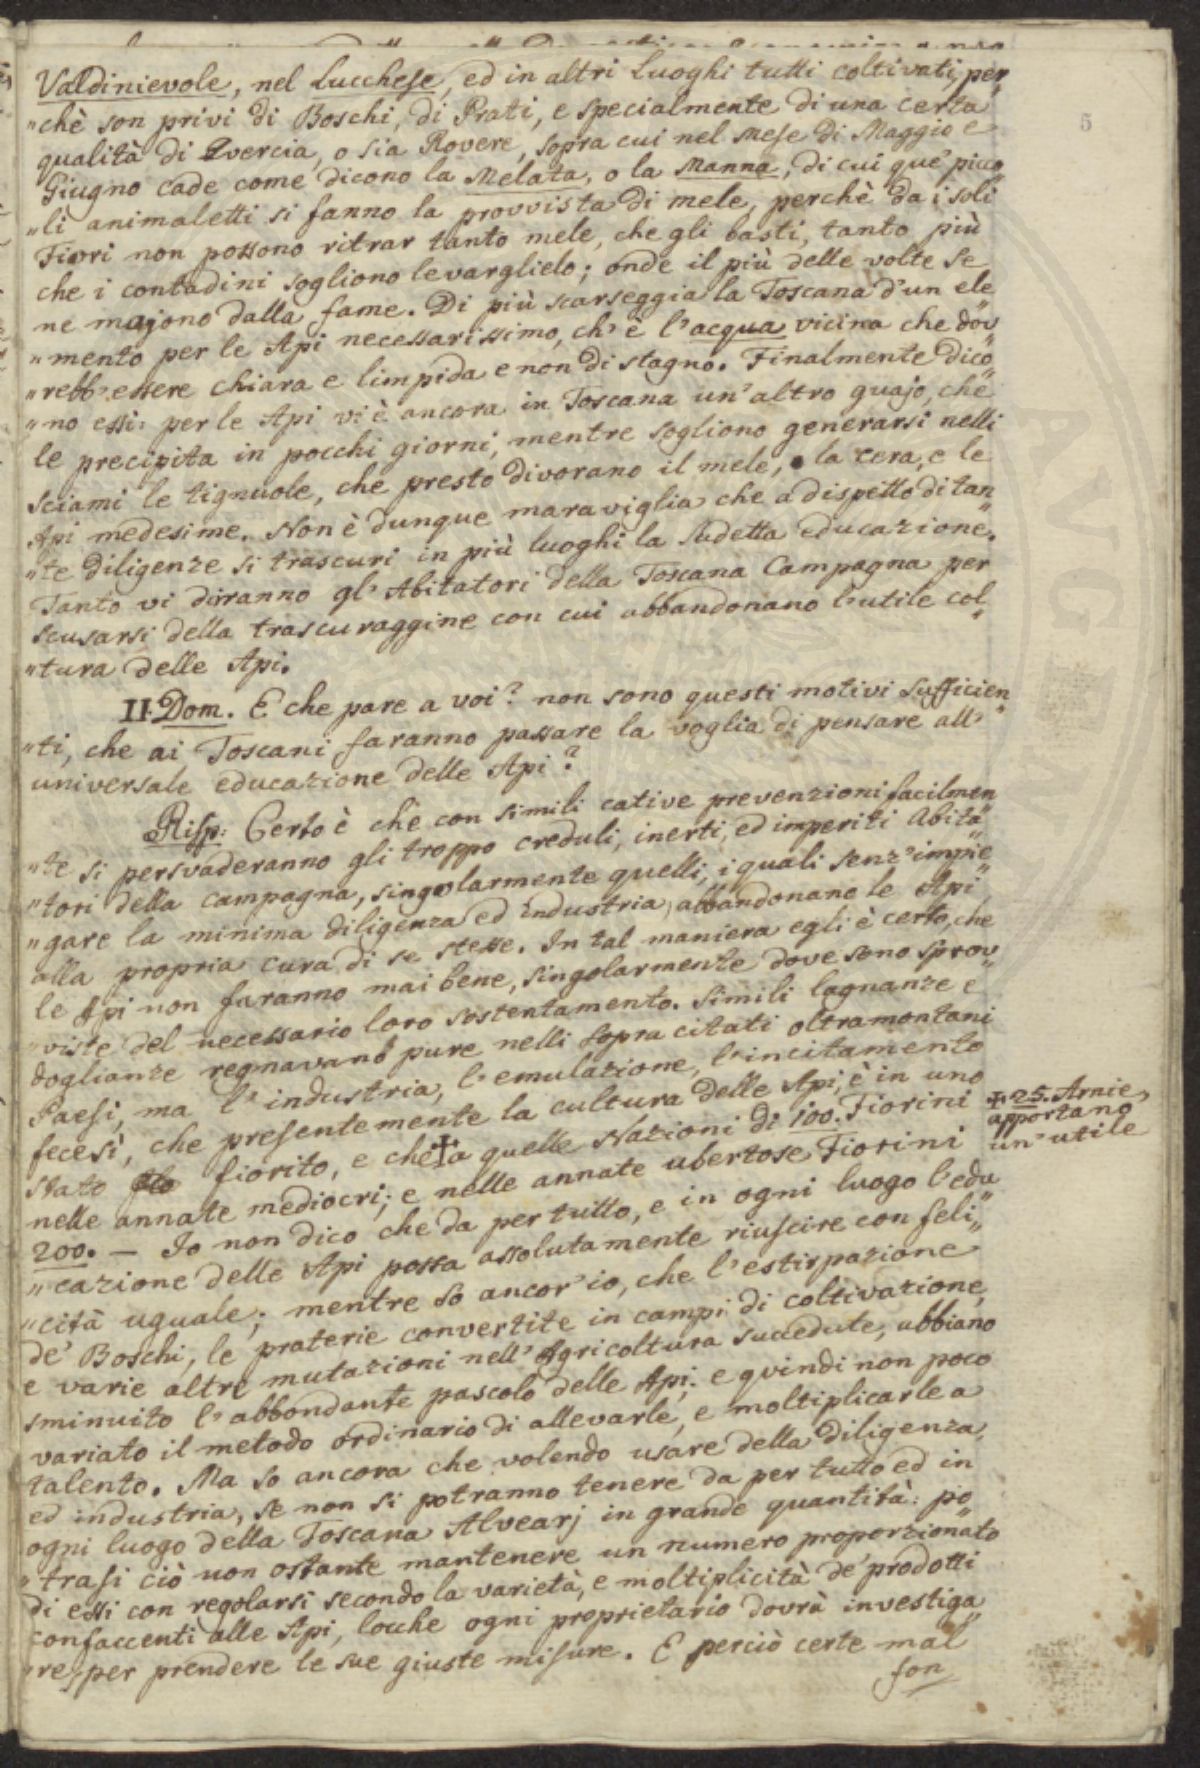 Valdinievole, nel Lucchese, ed in altri Luoghi tutti coltivati, per„
„chè son privi di Boschi, di Prati, e specialmente di una certa
qualità di Qvercia, o sia Rovere, sopra cui nel Mese di Maggio e
Giugno cade come dicono la Melata, o la Manna, di cui que' picco„
„li animaletti si fanno la provvista di mele, perchè da i soli
Fiori non possono ritrar tanto mele, che gli basti, tanto più
che i contadini sogliono levarglielo; onde il più delle volte se
ne muojono dalla fame. Di più scarseggia la Toscana d'un ele„
„mento per le Api necessarissimo, ch'è l'acqua vicina che dov„
„rebb'essere chiara e limpida e non di stagno. Finalmente dico„
„no essi: per le Api vi è ancora in Toscana un'altro guajo, che
le precipita in pocchi giorni, mentre sogliono generarsi nelli
sciami le tignuole, che presto divorano il mele, la cera, e le
Api medesime. Non è dunque maraviglia che a dispetto di tan„
„te diligenze si trascuri in più luoghi la sudetta educazione.
Tanto vi diranno gl'Abitatori della Toscana Campagna per
scusarsi della trascuraggine con cui abbandonano l'utile col„
„tura delle Api.
II. Dom. E che pare a voi? non sono questi motivi sufficien„
„ti, che ai Toscani faranno passare la voglia di pensare all'
universale educazione delle Api?
Risp: Certo è che con simili cative prevenzioni facilmen„
„te si persvaderanno gli troppo creduli, inerti, ed imperiti Abita„
„tori della campagna, singolarmente quelli, i quali senz'impie„
„gare la minima diligenza ed industria, abbandonano le Api
alla propria cura di se stesse. In tal maniera egli è certo, che
le Api non faranno mai bene, singolarmente dove sono sprov„
„viste del necessario loro sostentamento. Simili lagnanze e
doglianze regnavano pure nelli sopra citati oltramontani
Paesi, ma l'industria, l'emulazione, l'incitamento
fecesì, che presentemente la cultura delle Api, è in uno
stato fiorito, e che ✢ a quelle Nazioni di 100. Fiorini
✢ 25. Arnie
apportano
un'utile
nelle annate mediocri; e nelle annate ubertose Fiorini
200. — Io non dico che da per tutto, e in ogni luogo l'edu„
„cazione delle Api possa assolutamente riuscire con feli„
„cità uguale; mentre so ancor'io, che l'estirpazione
de' Boschi, le praterie convertite in campi di coltivazione,
e varie altre mutazioni nell'Agricoltura succedute, abbiano
sminuito l'abbondante pascolo delle Api; e quindi non poco
variato il metodo ordinario di allevarle, e moltiplicarle a
talento. Ma so ancora che volendo usare della diligenza,
ed industria, se non si potranno tenere da per tutto ed in
ogni luogo della Toscana Alvearj in grande quantità: po„
„trasi ciò non ostante mantenere un numero proporzionato
di essi con regolarsi secondo la varietà, e moltiplicità de' prodotti
confaccenti alle Api, locche ogni proprietario dovrà investiga„
„re, per prendere le sue giuste misure. E perciò certe mal
fon„
5